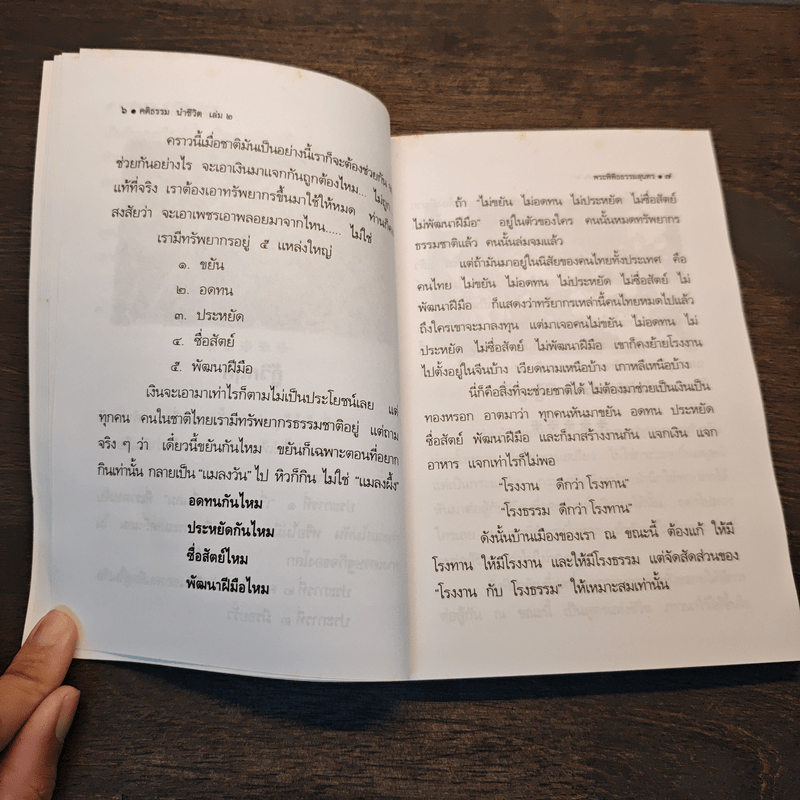 ๖ • คติธรรม นำชีวิต เล่ม ๒
คราวนี้เมื่อชาติมันเป็นอย่างนี้เราก็จะต้องช่วยกัน
ช่วยกันอย่างไร จะเอาเงินมาแจกกันถูกต้องไหม... ไม่ถูก
แท้ที่จริง เราต้องเอาทรัพยากรขึ้นมาใช้ให้หมด
สงสัยว่า จะเอาเพชรเอาพลอยมาจากไหน..... ไม่ใช่
เรามีทรัพยากรอยู่ ๕ แหล่งใหญ่
๑. ขยัน
๒. อดทน
๓. ประหยัด
๔. ซื่อสัตย์
๕. พัฒนาฝีมือ
เงินจะเอามาเท่าไรก็ตามไม่เป็นประโยชน์เลย แต่
ทุกคน คนในชาติไทยเรามีทรัพยากรธรรมชาติอยู่ แต่ถาม
จริง ๆ ว่า เดี๋ยวนี้ขยันกันไหม ขยันก็เฉพาะตอนที่อยาก
กินเท่านั้น กลายเป็น "แมลงวัน" ไป หิวก็กิน ไม่ใช่ "แมลงผึ้ง"
อดทนกันไหม
ประหยัดกันไหม
ซื่อสัตย์ไหม
พัฒนาฝีมือไหม
พระพิพิธธรรมสุนทร • ๗
ถ้า "ไม่ขยัน ไม่อดทน ไม่ประหยัด ไม่ซื่อสัตย์
ไม่พัฒนาฝีมือ" อยู่ในตัวของใคร คนนั้นหมดทรัพยากร
ธรรมชาติแล้ว คนนั้นล่มจมแล้ว
แต่ถ้ามันมาอยู่ในนิสัยของคนไทยทั้งประเทศ คือ
คนไทย ไม่ขยัน ไม่อดทน ไม่ประหยัด ไม่ซื่อสัตย์ ไม่
พัฒนาฝีมือ ก็แสดงว่าทรัยากรเหล่านี้คนไทยหมดไปแล้ว
ถึงใครเขาจะมาลงทุน แต่มาเจอคนไม่ขยัน ไม่อดทน ไม่
ประหยัด ไม่ซื่อสัตย์ ไม่พัฒนาฝีมือ เขาก็คงย้ายโรงงาน
ไปตั้งอยู่ในจีนบ้าง เวียดนามเหนือบ้าง เกาหลีเหนือบ้าง
นี่ก็คือสิ่งที่จะช่วยชาติได้ ไม่ต้องมาช่วยเป็นเงินเป็น
ทองหรอก อาตมาว่า ทุกคนหันมาขยัน อดทน ประหยัด
ซื่อสัตย์ พัฒนาฝีมือ และก็มาสร้างงานกัน แจกเงิน แจก
อาหาร แจกเท่าไรก็ไม่พอ
"โรงงาน ดีกว่า โรงทาน"
"โรงธรรม ดีกว่า โรงทาน"
ดังนั้นบ้านเมืองของเรา ณ ขณะนี้ ต้องแก้ ให้มี
โรงทาน ให้มีโรงงาน และให้มีโรงธรรม แต่จัดสัดส่วนของ
"โรงงาน กับ โรงธรรม" ให้เหมาะสมเท่านั้น